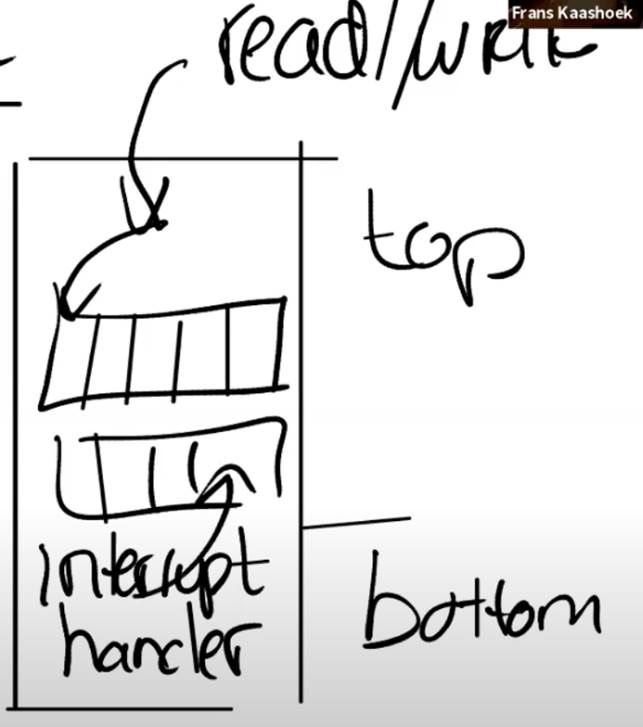 Frans Kaashoek
read/write
top
interrupt
handler
bottom